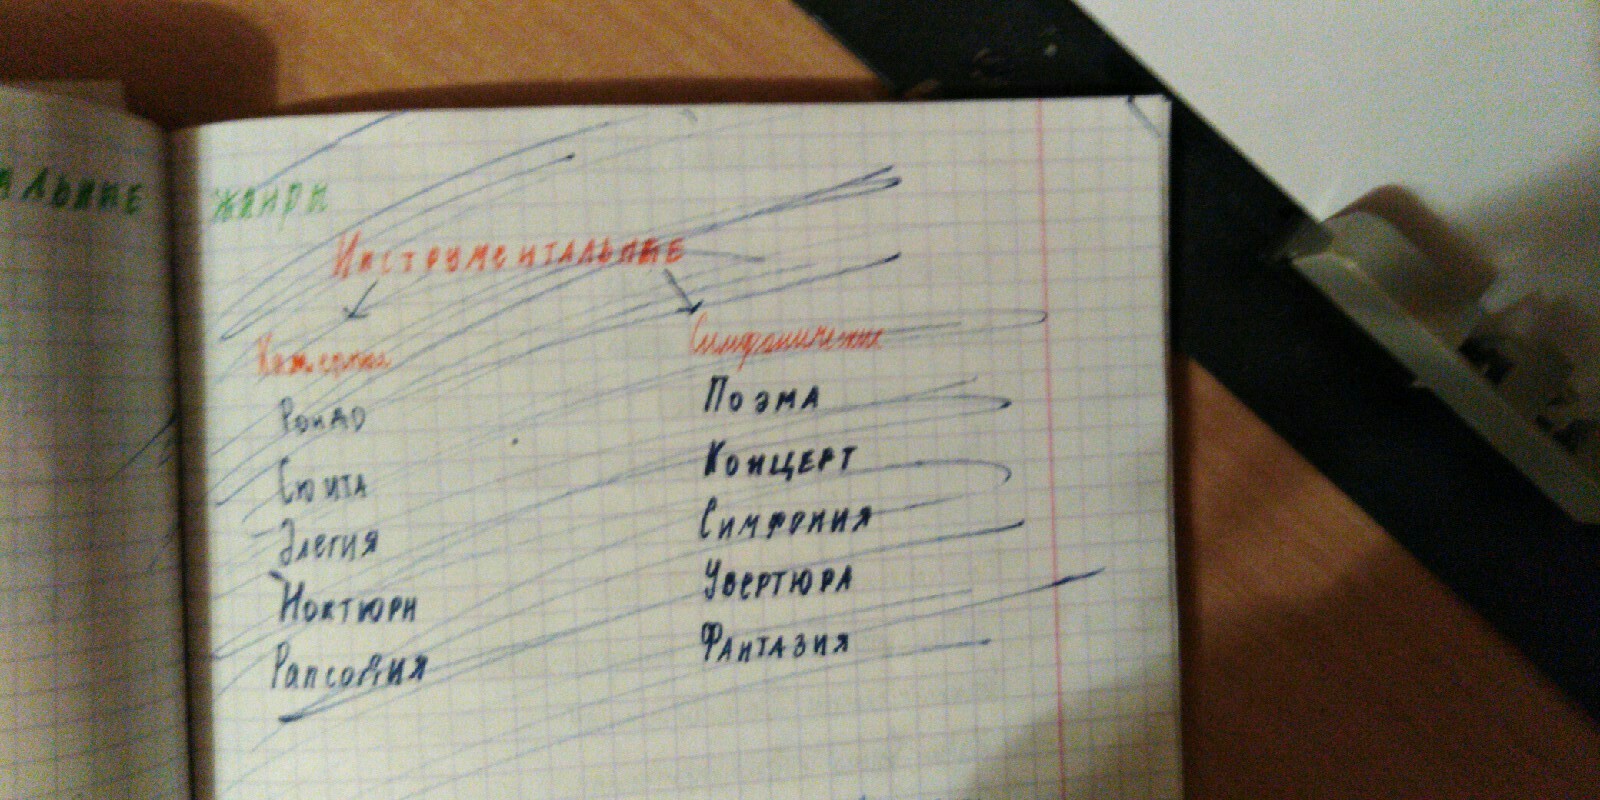 жанры
Инструментальные
Камерные
Симфонические
Рондо
Поэма
Сюита
Концерт
Элегия
Симфония
Ноктюрн
Увертюра
Рапсодия
Фантазия